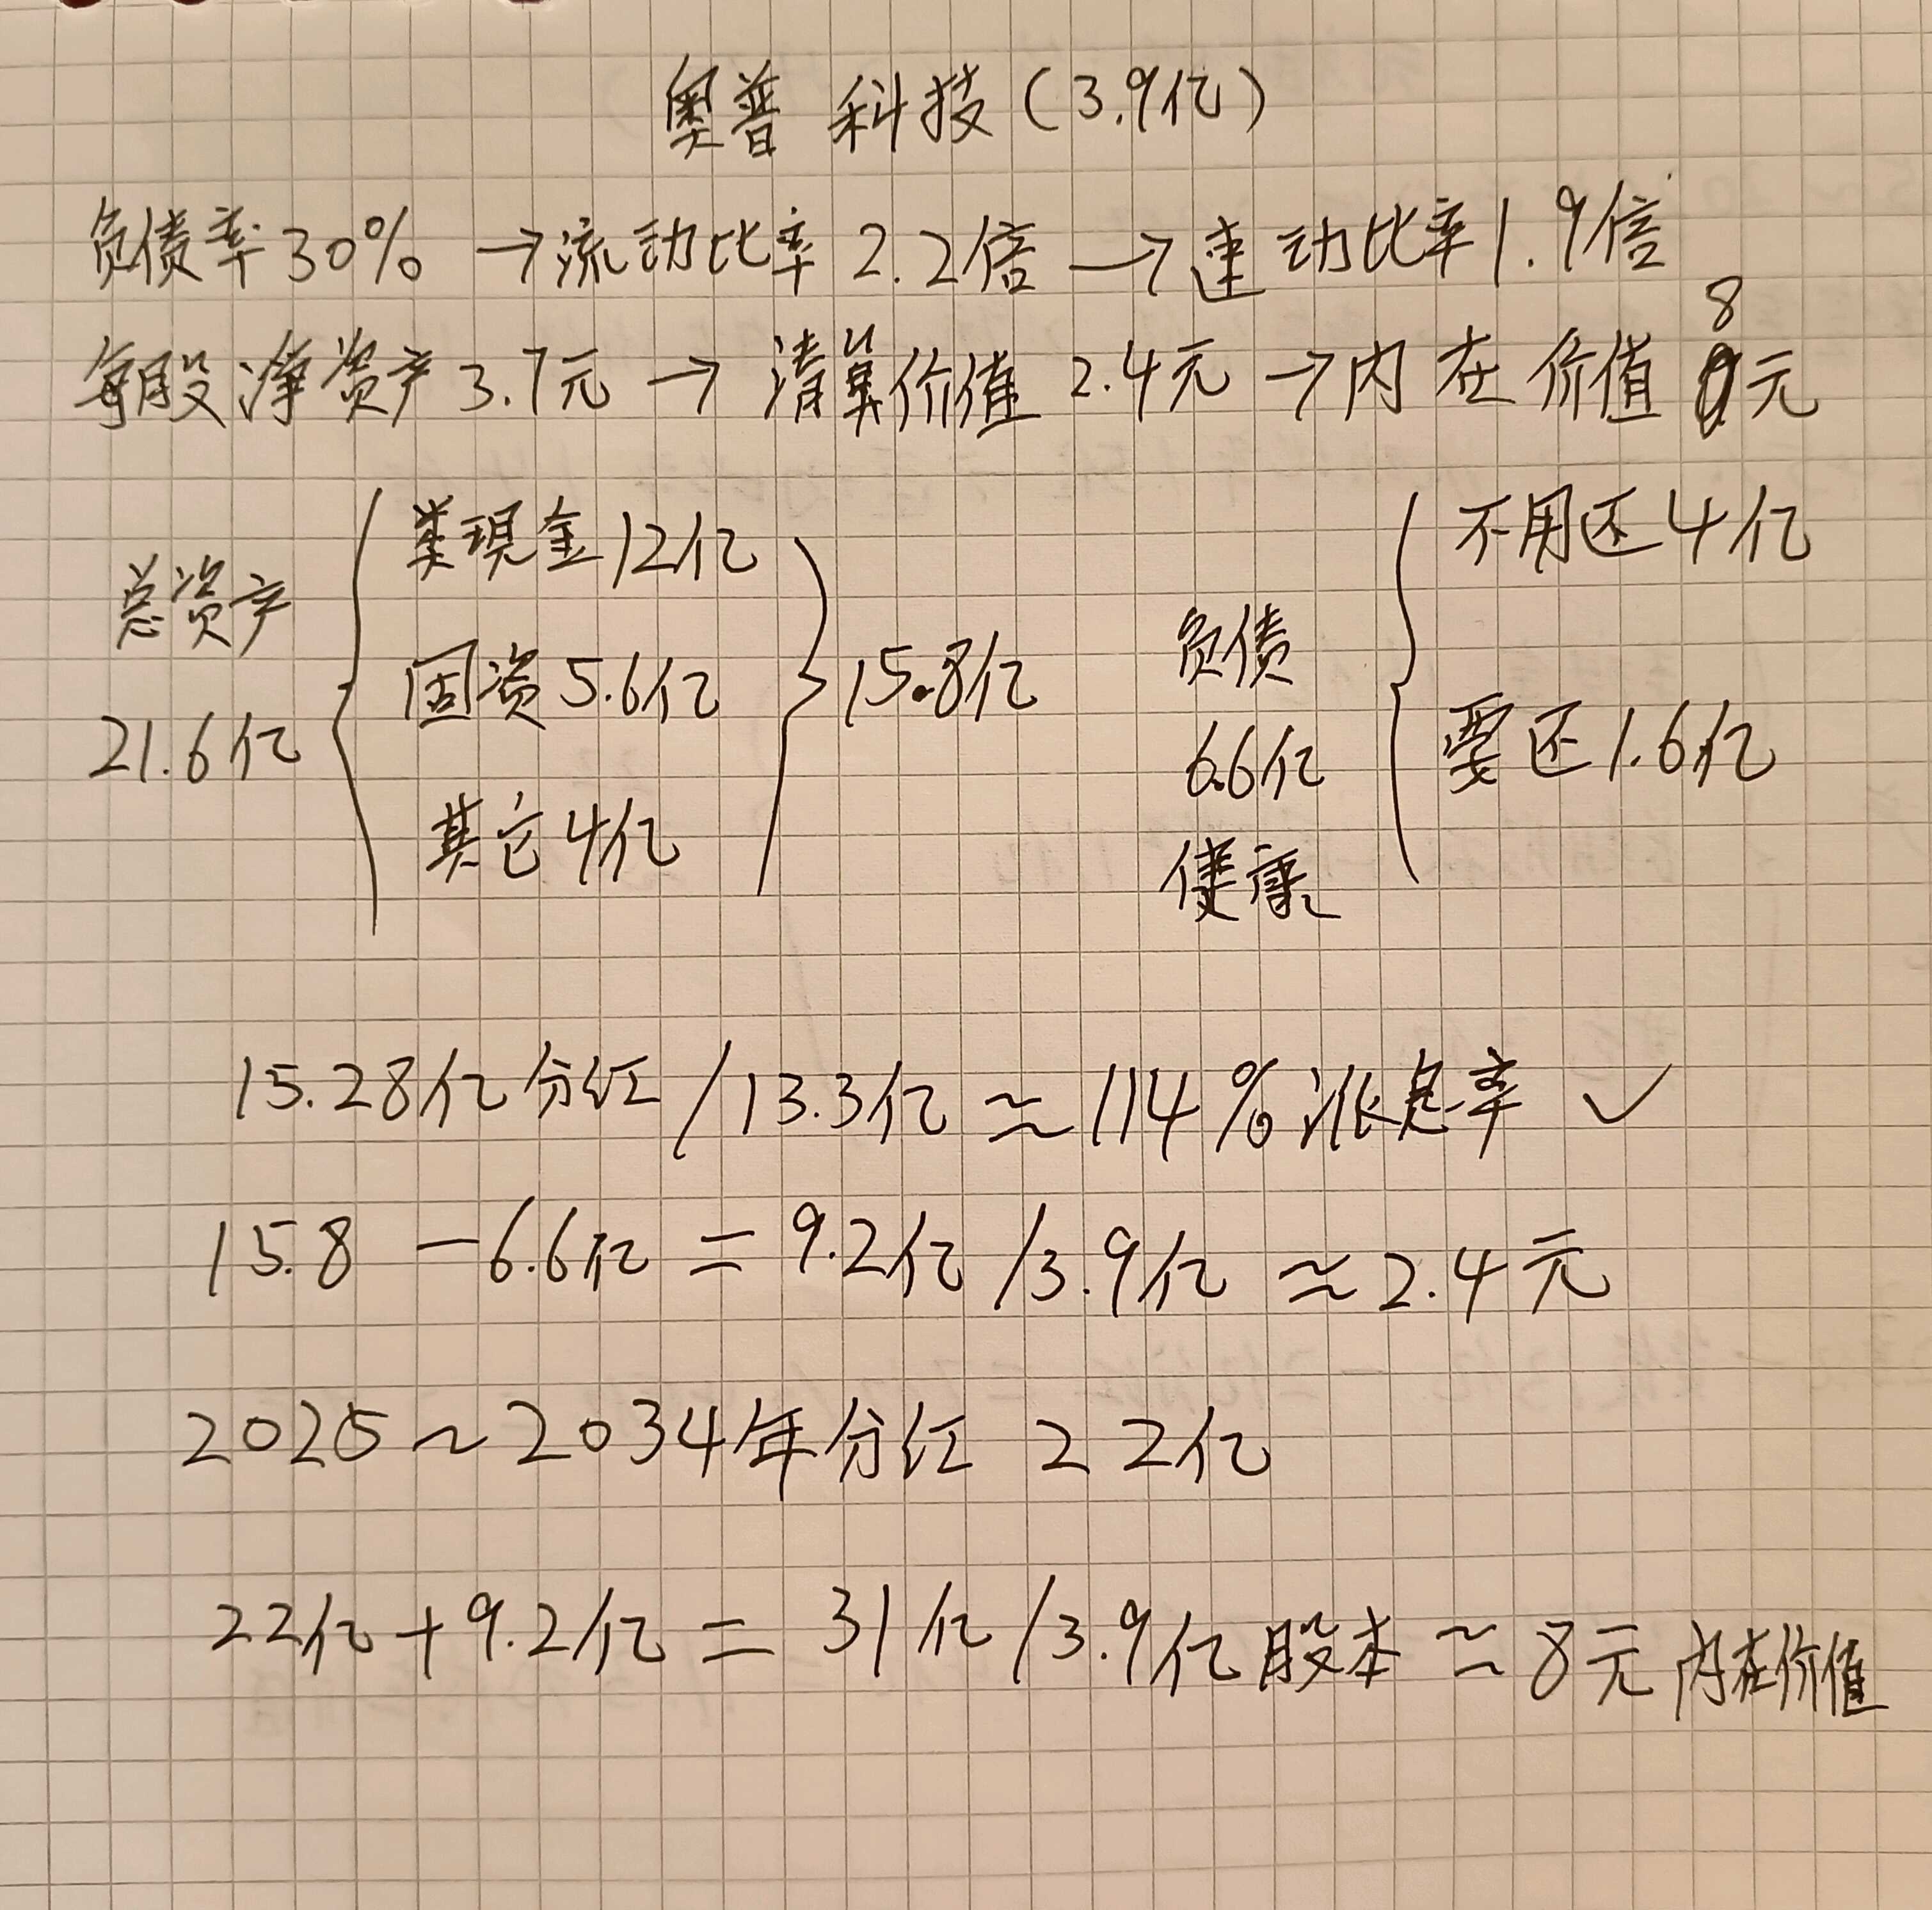 奥普科技(3.9亿)
负债率30% →流动比率2.2倍→速动比率1.9倍
8
每股净资产3.7元→清算价值2.4元→内在价值元
总资产
21.6亿
类现金12亿
固资5.6亿
其它4亿
15.8亿
负债
6.6亿
健康
不用还4亿
要还1.6亿
15.28亿分红/13.3亿≈114%派息率 ✓
15.8-6.6亿=9.2亿/3.9亿≈2.4元
2025~2034年分红22亿
22亿+9.2亿=31亿/3.9亿股本≈8元内在价值